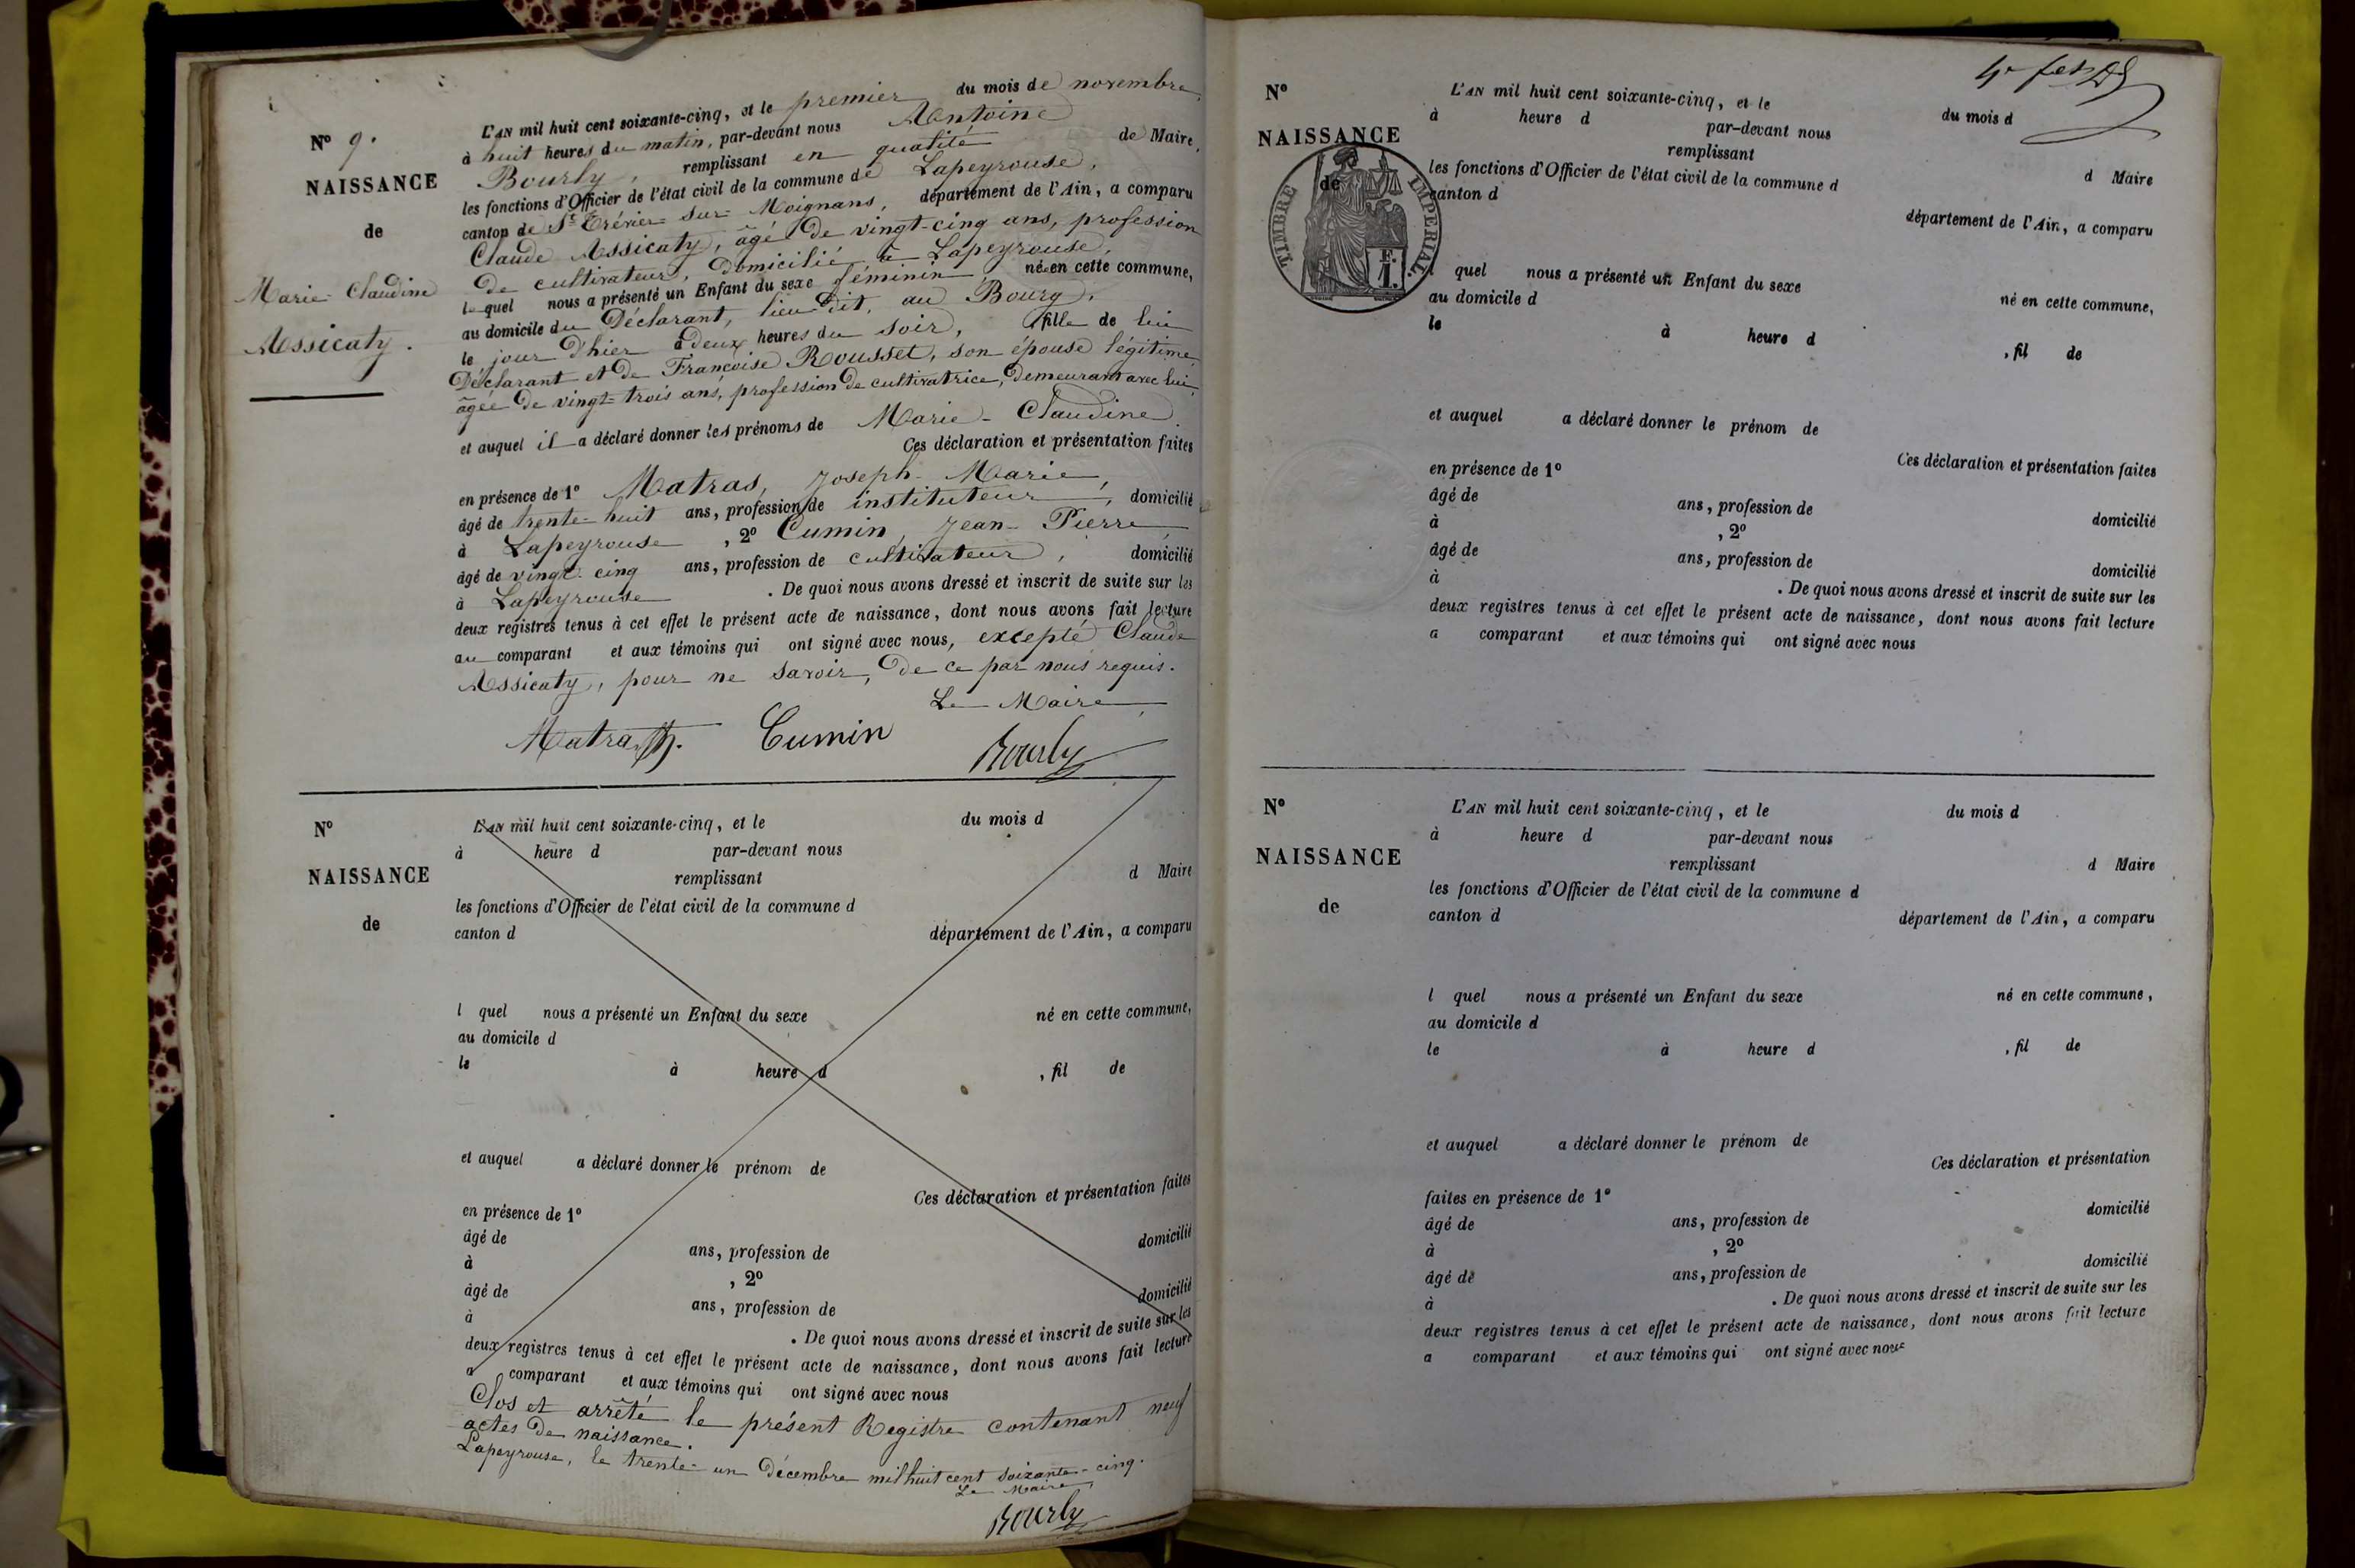 N° 9.
NAISSANCE
de
Marie Claudine
Assicaty.
L'AN mil huit cent soixante-cinq, et le premier du mois de novembre,
à huit heures du matin, par-devant nous Antoine
Bourly, remplissant en qualité de Maire,
les fonctions d'Officier de l'état civil de la commune de Lapeyrouse,
canton de St Trévier sur Moignans, département de l'Ain, a comparu
Claude Assicaty, âgé de vingt-cinq ans, profession
de cultivateur, domicilié à Lapeyrouse,
lequel nous a présenté un Enfant du sexe féminin, né en cette commune,
au domicile du Déclarant, lieu dit, au Bourg,
le jour d'hier à deux heures du soir, fille de lui
Déclarant et de Françoise Rousset, son épouse légitime,
âgée de vingt-trois ans, profession de cultivatrice, demeurant avec lui,
et auquel il a déclaré donner les prénoms de Marie-Claudine.
Ces déclaration et présentation faites
en présence de 1° Matras, Joseph-Marie,
âgé de trente-huit ans, profession de instituteur, domicilié
à Lapeyrouse, 2° Cumin, Jean-Pierre
âgé de vingt-cinq ans, profession de cultivateur, domicilié
à Lapeyrouse. De quoi nous avons dressé et inscrit de suite sur les
deux registres tenus à cet effet le présent acte de naissance, dont nous avons fait lecture
au comparant et aux témoins qui ont signé avec nous, excepté Claude
Assicaty, pour ne savoir, de ce par nous requis.
Le Maire,
Matras. Cumin Bourly
N°
NAISSANCE
de
L'AN mil huit cent soixante-cinq, et le du mois d
à heure d par-devant nous
remplissant d Maire
les fonctions d'Officier de l'état civil de la commune d
canton d département de l'Ain, a comparu
l quel nous a présenté un Enfant du sexe né en cette commune,
au domicile d
le à heure d , fil de
et auquel a déclaré donner le prénom de
Ces déclaration et présentation faites
en présence de 1°
âgé de ans, profession de domicilié
à , 2°
âgé de ans, profession de domicilié
à . De quoi nous avons dressé et inscrit de suite sur les
deux registres tenus à cet effet le présent acte de naissance, dont nous avons fait lecture
a comparant et aux témoins qui ont signé avec nous
Clos et arrêté le présent Registre contenant neuf
actes de naissance.
Lapeyrouse, le trente-un Décembre mil huit cent soixante-cinq.
Le Maire,
Bourly
N°
NAISSANCE
de
TIMBRE IMPERIAL
F.
1.
L'AN mil huit cent soixante-cinq, et le du mois d
à heure d par-devant nous
remplissant d Maire
les fonctions d'Officier de l'état civil de la commune d
canton d département de l'Ain, a comparu
l quel nous a présenté un Enfant du sexe né en cette commune,
au domicile d
le à heure d , fil de
et auquel a déclaré donner le prénom de
Ces déclaration et présentation faites
en présence de 1°
âgé de ans, profession de domicilié
à , 2°
âgé de ans, profession de domicilié
à . De quoi nous avons dressé et inscrit de suite sur les
deux registres tenus à cet effet le présent acte de naissance, dont nous avons fait lecture
a comparant et aux témoins qui ont signé avec nous
N°
NAISSANCE
de
L'AN mil huit cent soixante-cinq, et le du mois d
à heure d par-devant nous
remplissant d Maire
les fonctions d'Officier de l'état civil de la commune d
canton d département de l'Ain, a comparu
l quel nous a présenté un Enfant du sexe né en cette commune,
au domicile d
le à heure d , fil de
et auquel a déclaré donner le prénom de
Ces déclaration et présentation
faites en présence de 1°
âgé de ans, profession de domicilié
à , 2°
âgé de ans, profession de domicilié
à . De quoi nous avons dressé et inscrit de suite sur les
deux registres tenus à cet effet le présent acte de naissance, dont nous avons fait lecture
a comparant et aux témoins qui ont signé avec nous